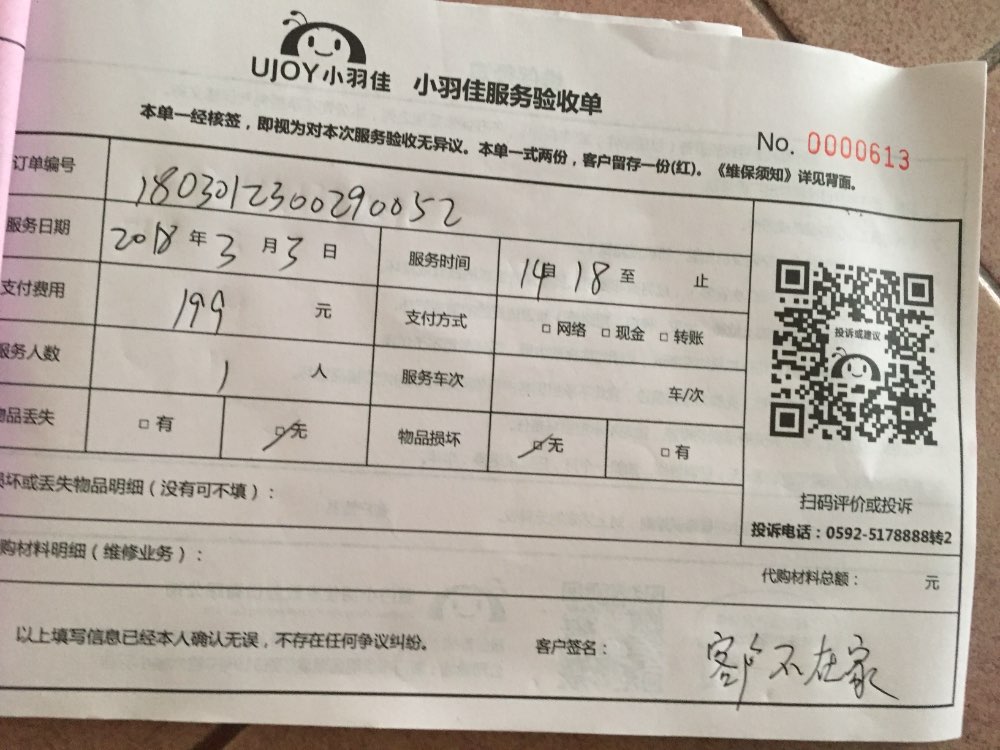 UJOY小羽佳 小羽佳服务验收单
No. 0000613
本单一经核签，即视为对本次服务验收无异议。本单一式两份，客户留存一份(红)。《维保须知》详见背面。
订单编号 1803012300290052
服务日期 2018 年 3 月 3 日 服务时间 14自 18 至 止
支付费用 199 元 支付方式 □ 网络 □ 现金 □ 转账
服务人数 1 人 服务车次 车/次
物品丢失 □ 有 □无 物品损坏 □无 □ 有
损坏或丢失物品明细（没有可不填）：
投诉或建议
扫码评价或投诉
投诉电话：0592-5178888转2
购材料明细（维修业务）：
代购材料总额： 元
以上填写信息已经本人确认无误，不存在任何争议纠纷。 客户签名： 客户不在家